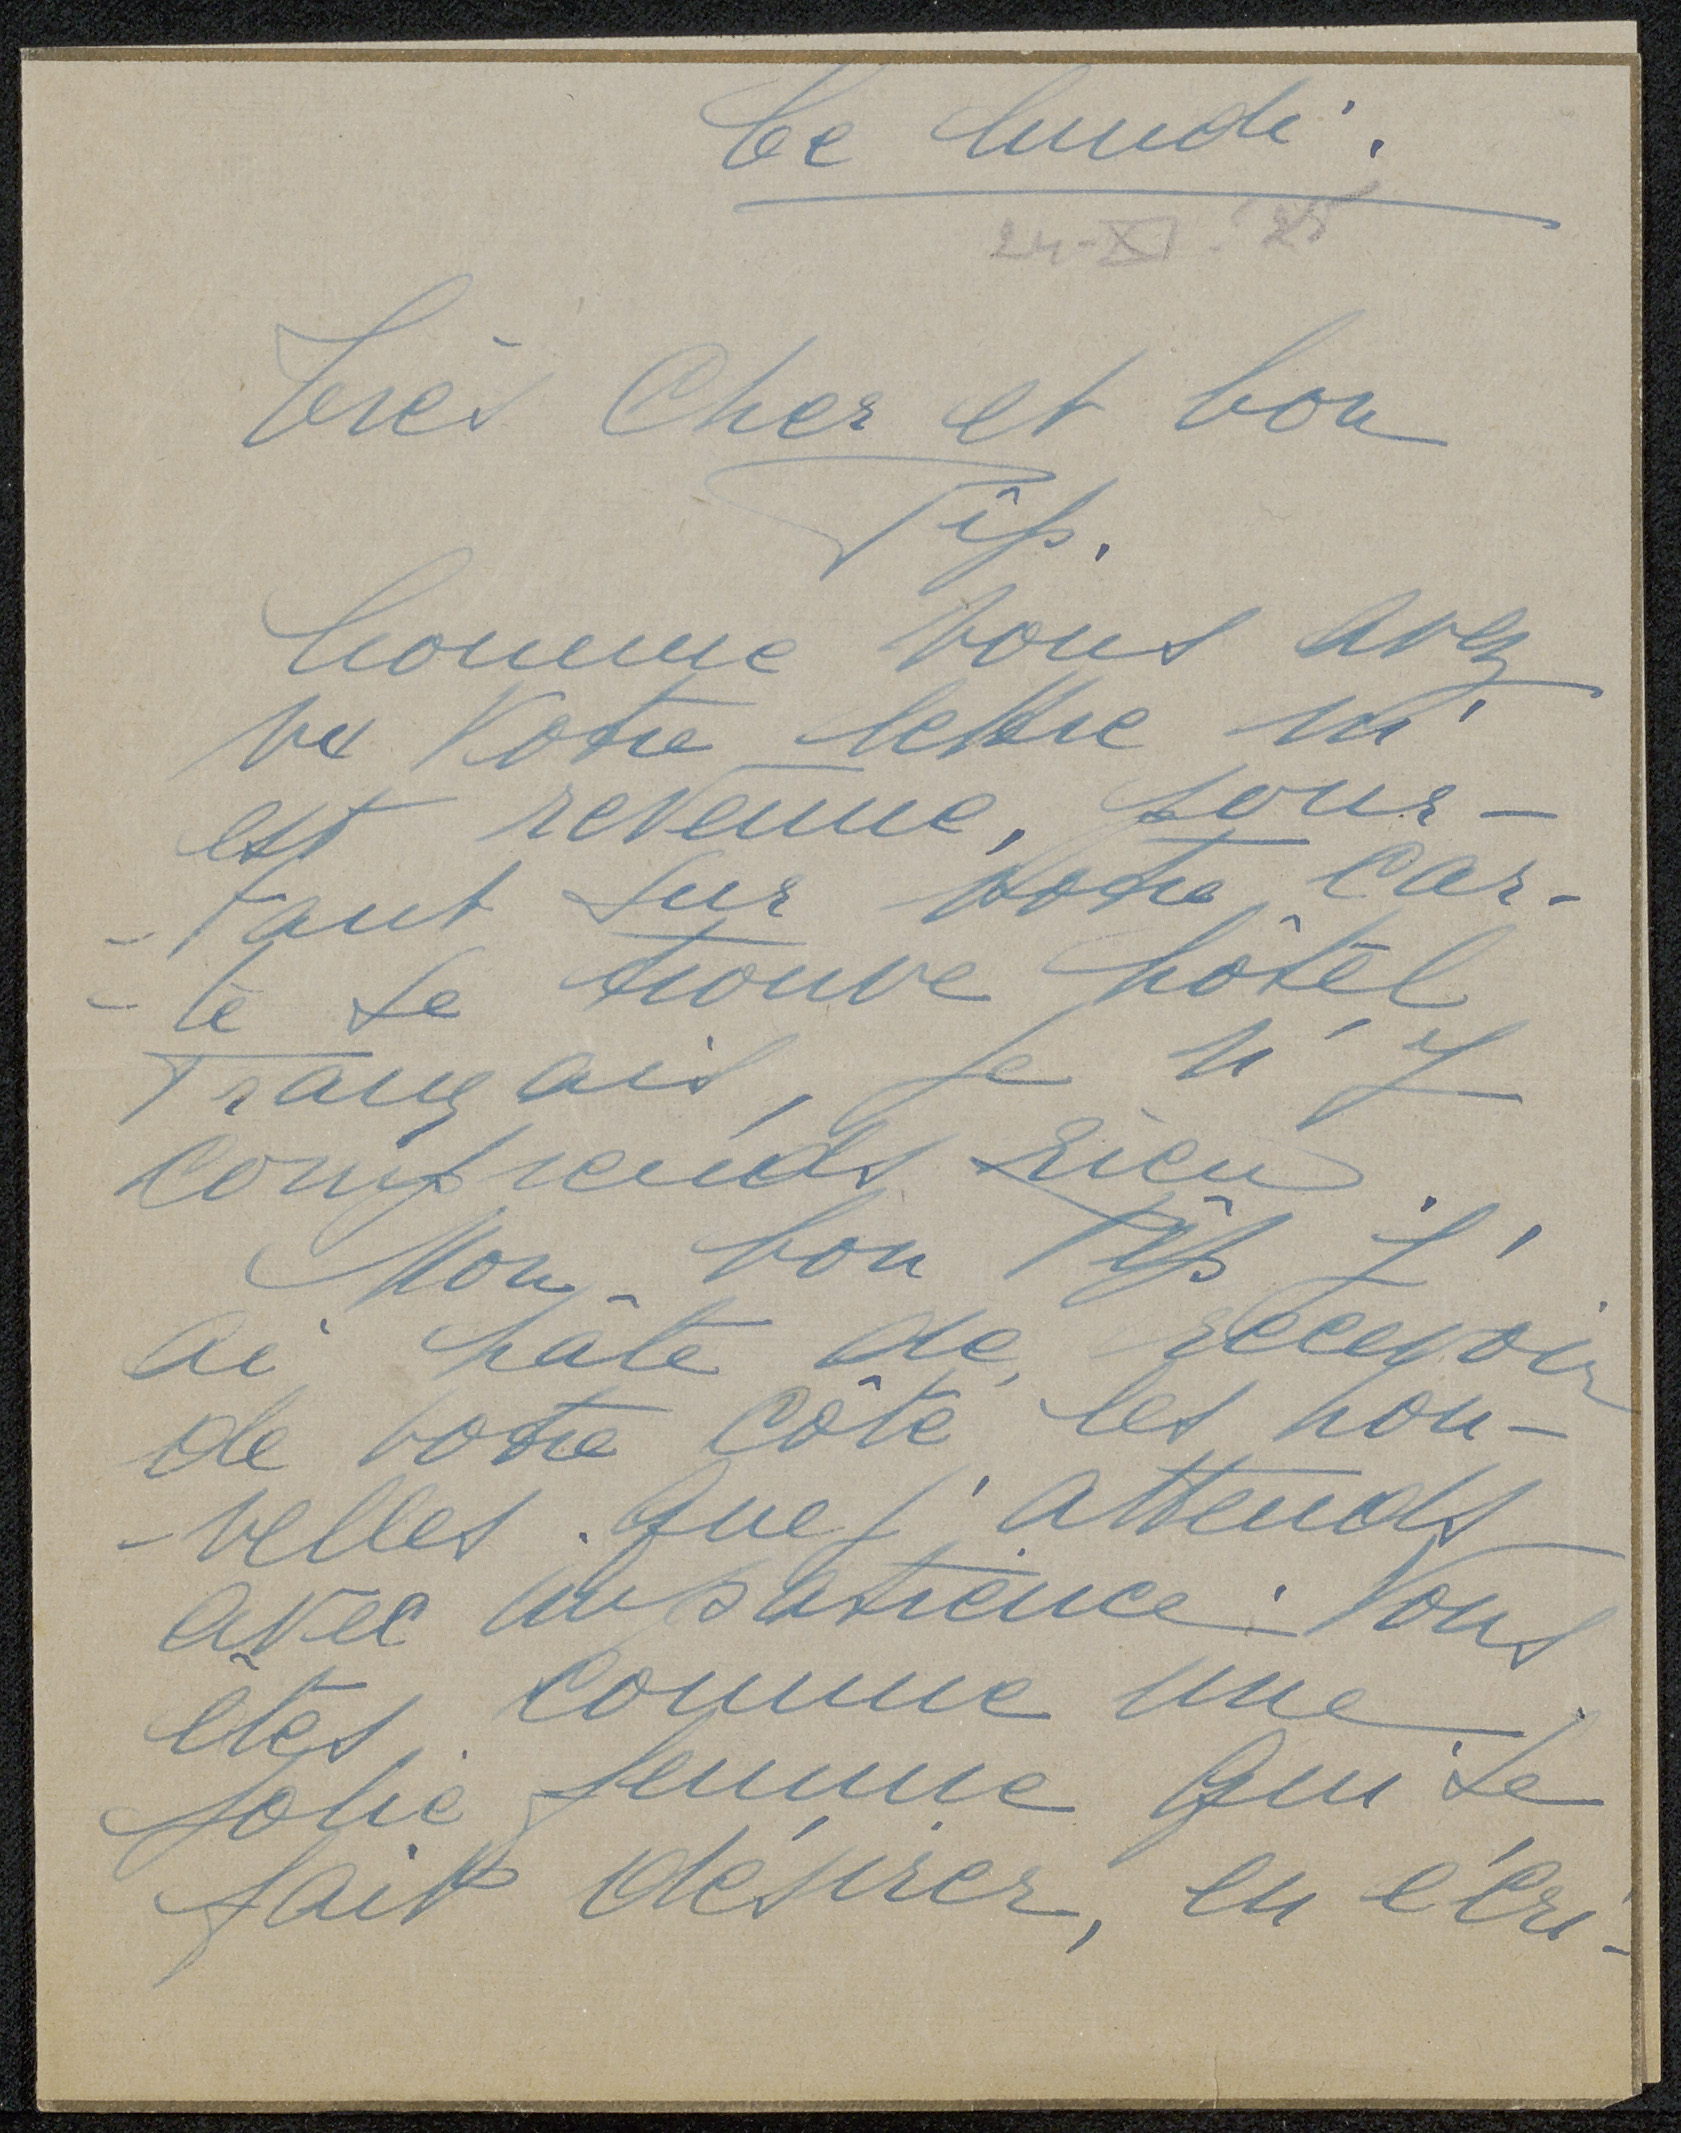 Ce lundi.
24-XI-'25
Très Cher et bon
Tîp.
Comme vous avez
vu votre lettre m'
est revenue, pour-
-tant sur votre car-
-te se trouve hôtel
Français, je n'y
comprends rien.
Mon bon Tîp j'
ai hâte de recevoir
de votre côté les nou-
-velles que j'attends
avec impatience. Vous
êtes comme une
jolie femme qui se
fait désirer, en écri-